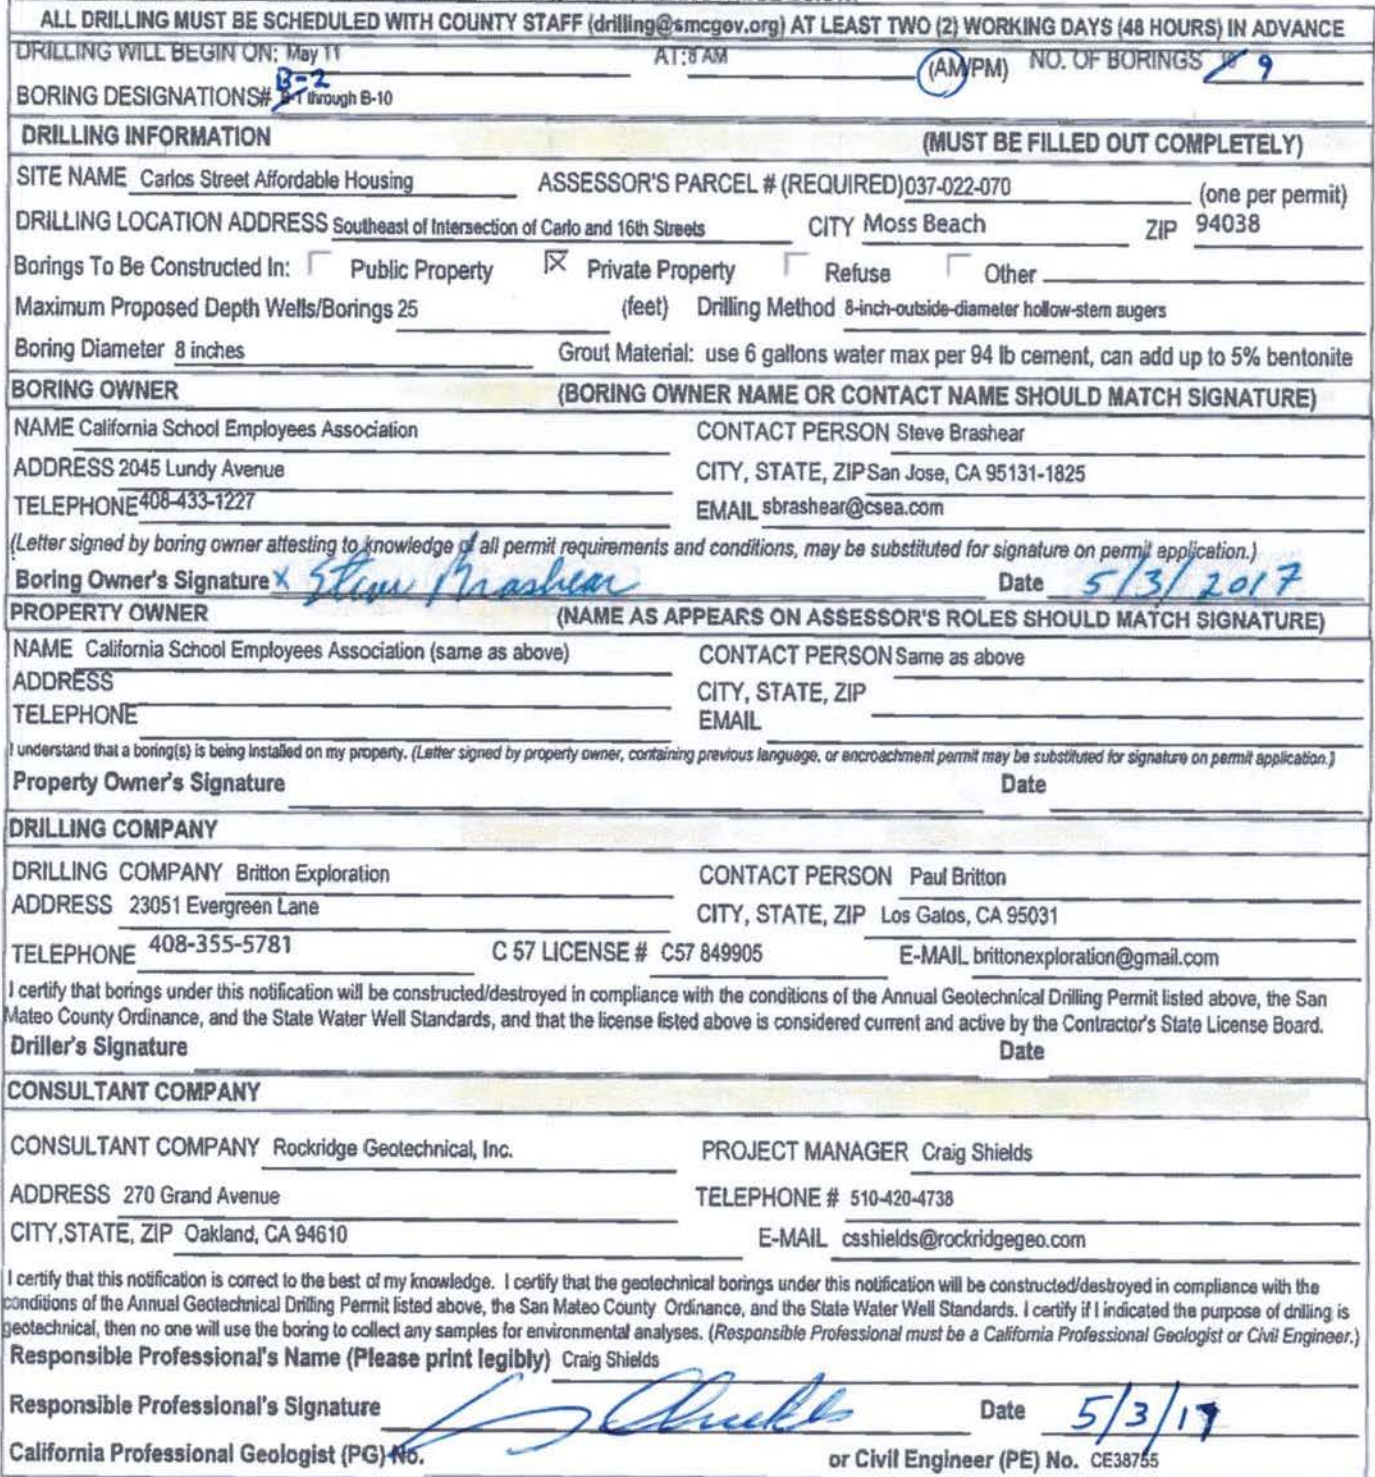 ALL DRILLING MUST BE SCHEDULED WITH COUNTY STAFF (drilling@smcgov.org) AT LEAST TWO (2) WORKING DAYS (48 HOURS) IN ADVANCE
DRILLING WILL BEGIN ON: May 11 AT: 8 AM (AM/PM) NO. OF BORINGS 9
B-2
BORING DESIGNATIONS# B-1 through B-10
DRILLING INFORMATION (MUST BE FILLED OUT COMPLETELY)
SITE NAME Carlos Street Affordable Housing ASSESSOR'S PARCEL # (REQUIRED) 037-022-070 (one per permit)
DRILLING LOCATION ADDRESS Southeast of Intersection of Carlo and 16th Streets CITY Moss Beach ZIP 94038
Borings To Be Constructed In: Public Property Private Property Refuse Other
Maximum Proposed Depth Wells/Borings 25 (feet) Drilling Method 8-inch-outside-diameter hollow-stem augers
Boring Diameter 8 inches Grout Material: use 6 gallons water max per 94 lb cement, can add up to 5% bentonite
BORING OWNER (BORING OWNER NAME OR CONTACT NAME SHOULD MATCH SIGNATURE)
NAME California School Employees Association CONTACT PERSON Steve Brashear
ADDRESS 2045 Lundy Avenue CITY, STATE, ZIP San Jose, CA 95131-1825
TELEPHONE 408-433-1227 EMAIL sbrashear@csea.com
(Letter signed by boring owner attesting to knowledge of all permit requirements and conditions, may be substituted for signature on permit application.)
Boring Owner's Signature X Steve Brashear Date 5/3/2017
PROPERTY OWNER (NAME AS APPEARS ON ASSESSOR'S ROLES SHOULD MATCH SIGNATURE)
NAME California School Employees Association (same as above) CONTACT PERSON Same as above
ADDRESS CITY, STATE, ZIP
TELEPHONE EMAIL
I understand that a boring(s) is being installed on my property. (Letter signed by property owner, containing previous language, or encroachment permit may be substituted for signature on permit application.)
Property Owner's Signature Date
DRILLING COMPANY
DRILLING COMPANY Britton Exploration CONTACT PERSON Paul Britton
ADDRESS 23051 Evergreen Lane CITY, STATE, ZIP Los Gatos, CA 95031
TELEPHONE 408-355-5781 C 57 LICENSE # C57 849905 E-MAIL brittonexploration@gmail.com
I certify that borings under this notification will be constructed/destroyed in compliance with the conditions of the Annual Geotechnical Drilling Permit listed above, the San
Mateo County Ordinance, and the State Water Well Standards, and that the license listed above is considered current and active by the Contractor's State License Board.
Driller's Signature Date
CONSULTANT COMPANY
CONSULTANT COMPANY Rockridge Geotechnical, Inc. PROJECT MANAGER Craig Shields
ADDRESS 270 Grand Avenue TELEPHONE # 510-420-4738
CITY,STATE, ZIP Oakland, CA 94610 E-MAIL csshields@rockridgegeo.com
I certify that this notification is correct to the best of my knowledge. I certify that the geotechnical borings under this notification will be constructed/destroyed in compliance with the
conditions of the Annual Geotechnical Drilling Permit listed above, the San Mateo County Ordinance, and the State Water Well Standards. I certify if I indicated the purpose of drilling is
geotechnical, then no one will use the boring to collect any samples for environmental analyses. (Responsible Professional must be a California Professional Geologist or Civil Engineer.)
Responsible Professional's Name (Please print legibly) Craig Shields
Responsible Professional's Signature Date 5/3/17
California Professional Geologist (PG) No. or Civil Engineer (PE) No. CE38755